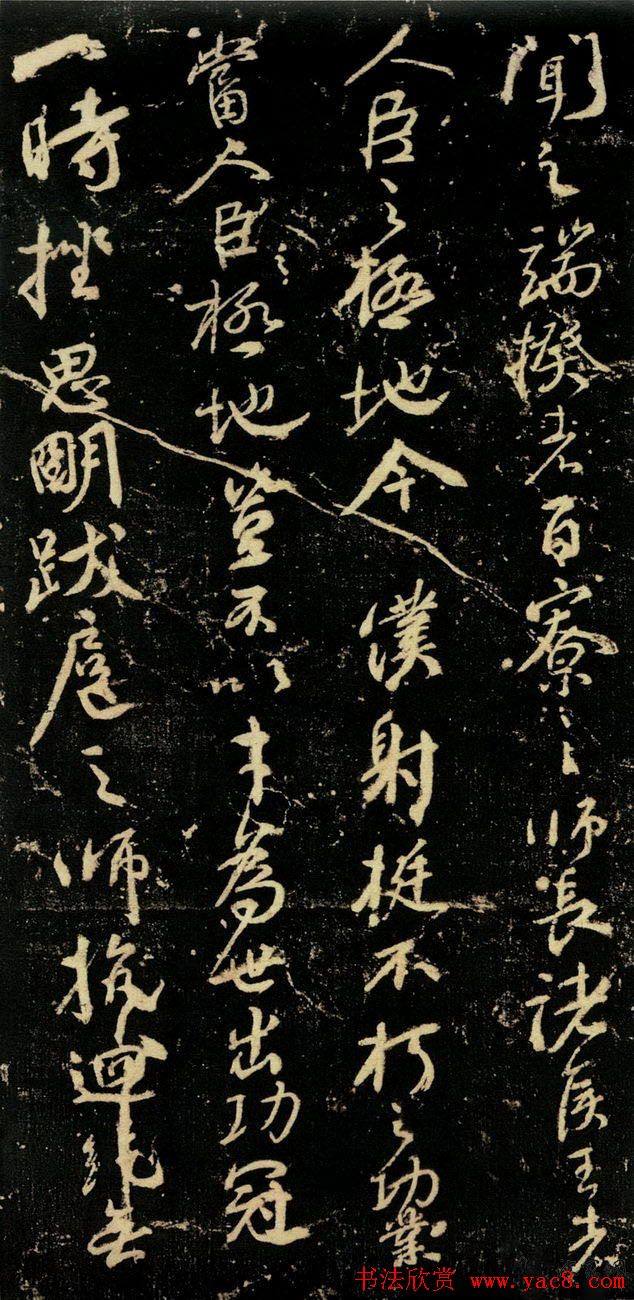 聞之端揆者百寮之師長諸侯王者
人臣之極地今僕射挺不朽之功業
當人臣之極地豈不以才為世出功冠
一時挫思明跋扈之師抗迴紇無
书法欣赏 www.yac8.com